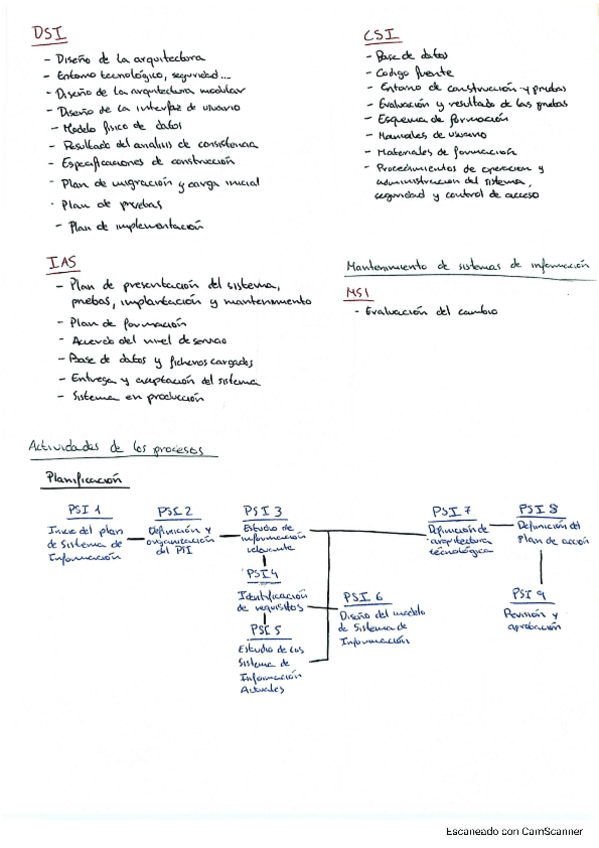 DSI
- Diseño de la arquitectura
- Entorno tecnológico, seguridad...
- Diseño de la arquitectura modular
- Diseño de la interfaz de usuario
- Modelo físico de datos
- Resultado del analisis de consistencia
- Especificaciones de construcción
- Plan de migración y carga inicial
- Plan de pruebas
- Plan de implementación
CSI
- Base de datos
- Codigo fuente
- Entorno de construcción y pruebas
- Evaluación y resultado de las pruebas
- Esquema de formación
- Manuales de usuario
- Materiales de formación
- Procedimientos de operacion y
administracion del sistema,
seguridad y control de acceso
IAS
- Plan de presentación del sistema,
pruebas, implantación y mantenimiento
- Plan de formación
- Acuerdo del nivel de servicio
- Base de datos y ficheros cargados
- Entrega y aceptación del sistema
- Sistema en producción
Mantenimiento de sistemas de información
MSI
- Evaluación del cambio
Actividades de los procesos
Planificación
PSI 1
Inicio del plan
de Sistema de
Información
PSI 2
Definición y
organización
del PSI
PSI 3
Estudio de
información
relevante
PSI 4
Identificación
de requisitos
PSI 5
Estudio de los
Sistema de
Información
Actuales
PSI 6
Diseño del modelo
de Sistema de
Información
PSI 7
Definición de
arquitectura
tecnológica
PSI 8
Definición del
Plan de acción
PSI 9
Revisión y
aprobación
Escaneado con CamScanner